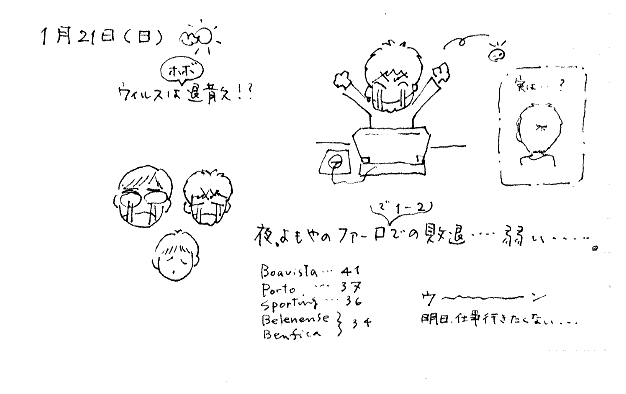 1月21日(日)
ホボ
ウィルスは退散!?
実は…?
(で1-2)
夜、よもやのファーロでの敗退‥‥弱い‥‥‥。
Boavista … 41
Porto … 37
Sporting … 36
Belenense } 34
Benfica
ウ〜〜〜ン
明日、仕事行きたくない...